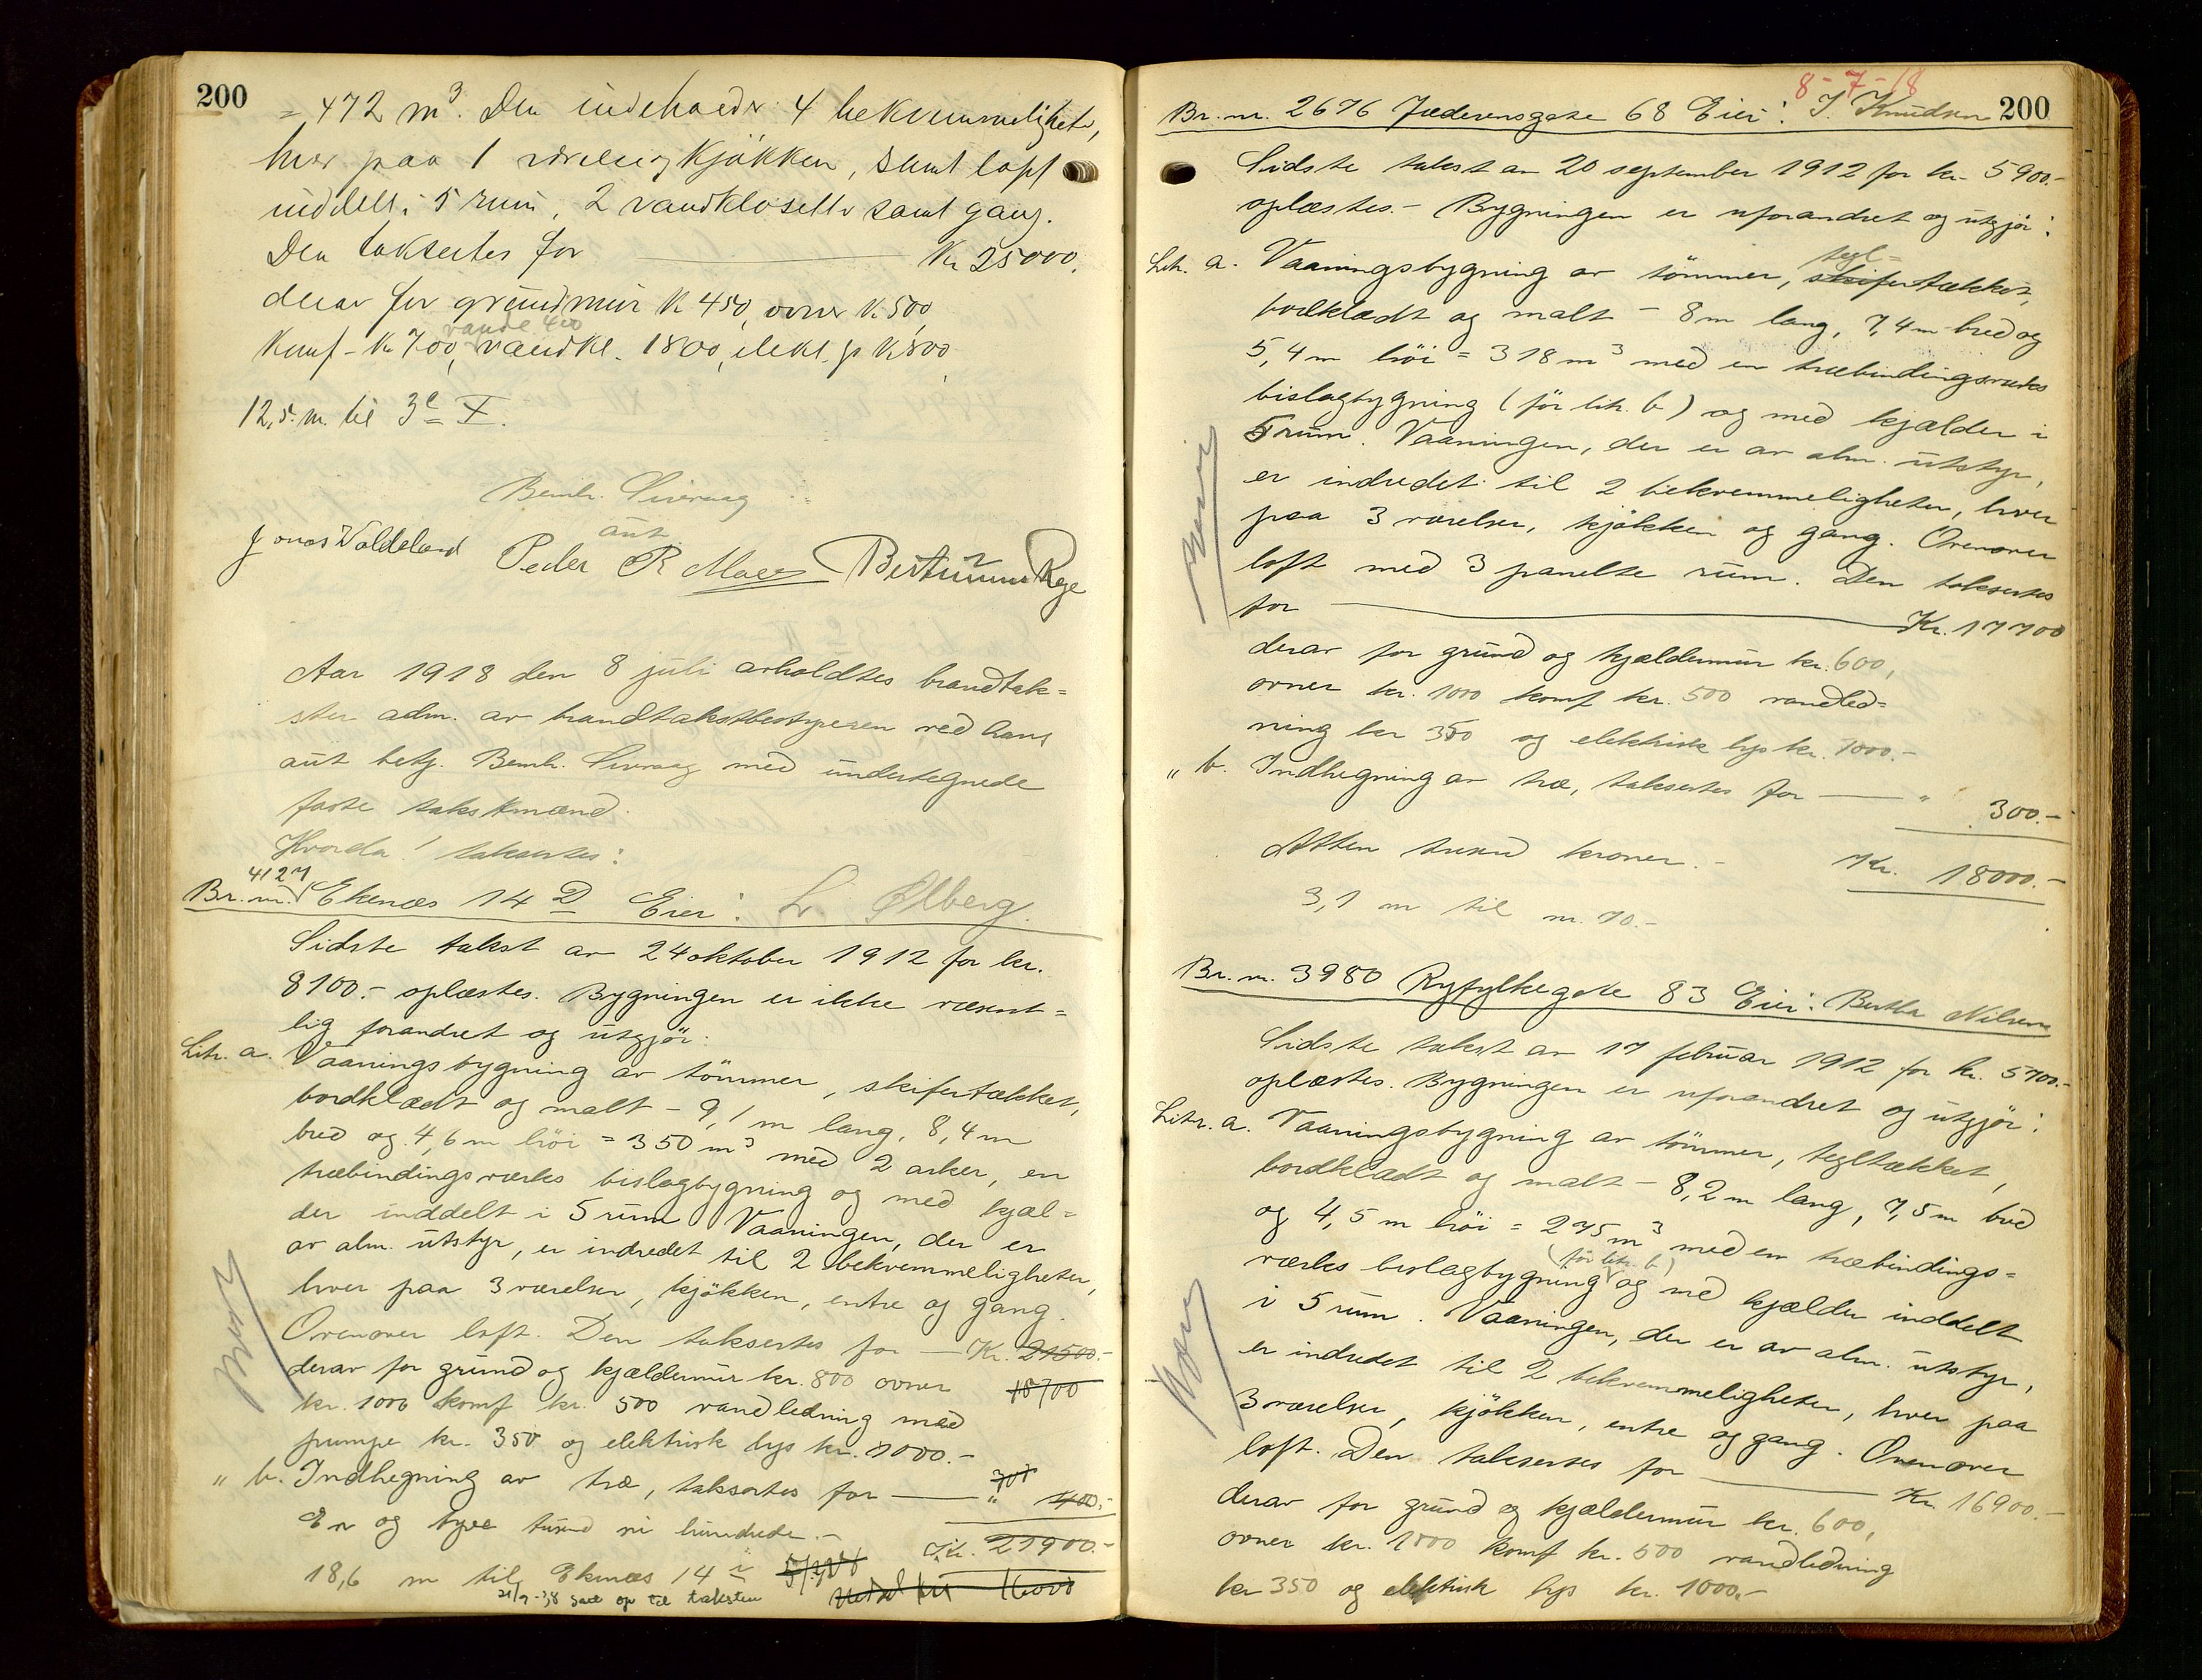 200
= 472 m³. Den indeholder 4 bekvemmeligheter,
hver paa 1 værelse og kjøkken, samt loft
inddelt i 5 rum, 2 vandklosetter samt gang.
Den takseres for Kr 25000.
derav for grundmur K 450, ovner K. 500,
vandl. 400
Komf- Kr 700, vandkl. 1800, elekt. K 800
12,5 m. til 3e
Bernh. Siveraag
aut
Jonas Woldeland Peder R Moe
Aar 1918 den 8 juli avholdtes brandtak=
ster adm. av brandtakstbestyreren ved hans
aut betj. Bernh. Siveraag med undertegnede
faste takstmænd.
Hvorda! takseres:
4127
Br. nr. Ekenæs 14 D Eier: L. Ølberg.
Sidste takst av 24 oktober 1912 for kr.
8100.- oplæstes. Bygningen er ikke væsent=
lig forandret og utgjør.
Litr. a. Vaaningsbygning av tømmer, skifertækket,
bordklædt og malt - 9,1 m lang, 8,4 m
bred og 4,6 m høi = 350 m³ med 2 arker, en
træbindingsverks bislagbygning og med kjæl=
der inddelt i 5 rum. Vaaningen, der er
av alm. utstyr, er indredet til 2 bekvemmeligheter,
hver paa 3 værelser, kjøkken, entre og gang.
Ovenover loft. Den takseres for - Kr. 21500.-
derav for grund og kjældermur kr. 800 ovner 15700
kr. 1000 komf kr. 500 vandledning med
pumpe kr. 350 og elektrisk lys kr. 1000.-
300
" b. Indhegning av træ, takseres for - " 400.-
En og tyve tusend ni hundrede.- Kr. 21900.-
18,6 m til Ekenæs 14 i
21/9-38 sat op til taksten 16000
8-7-18
Br. nr. 2676 Jæderensgate 68 Eier: J. Knudsen 200
Sidste takst av 20 september 1912 for kr. 5900.-
oplæstes.- Bygningen er uforandret og utgjør:
tegl=
Litr. a. Vaaningsbygning av tømmer, skifertækket,
bordklædt og malt - 8 m lang, 7,4 m bred og
5,4 m høi = 318 m³ med en træbindingsverks
bislagbygning (før litr. b) og med kjælder i
5 rum. Vaaningen, der er av alm. utstyr,
er indredet til 2 bekvemmeligheter, hver
paa 3 værelser, kjøkken og gang. Ovenover
loft med 3 panelte rum. Den takseres
for Kr. 17700
derav for grund og kjældermur kr. 600,
ovner kr. 1000 komf kr. 500 vandled=
ning kr 350 og elektrisk lys kr. 1000.-
" b. Indhegning av træ, takseres for - " 300.-
Atten tusend kroner.- Kr. 18000.-
3,1 m til nr. 70.-
Br. nr. 3980 Ryfylkegate 83 Eier: Bertha Nilsen
Sidste takst av 17 februar 1912 for kr. 5700.-
oplæstes. Bygningen er uforandret og utgjør:
Litr. a. Vaaningsbygning av tømmer, tegltækket,
bordklædt og malt - 8,2 m lang, 7,5 m bred
og 4,5 m høi = 275 m³ med en træbindings=
(før litr. b)
verks bislagbygning og med kjælder inddelt
i 5 rum. Vaaningen, der er av alm. utstyr,
er indredet til 2 bekvemmeligheter, hver paa
3 værelser, kjøkken, entre og gang. Ovenover
loft. Den takseres for Kr 16900.-
derav for grund og kjældermur kr. 600,
ovner kr. 1000 komf kr. 500 vandledning
kr 350 og elektrisk lys kr. 1000.-